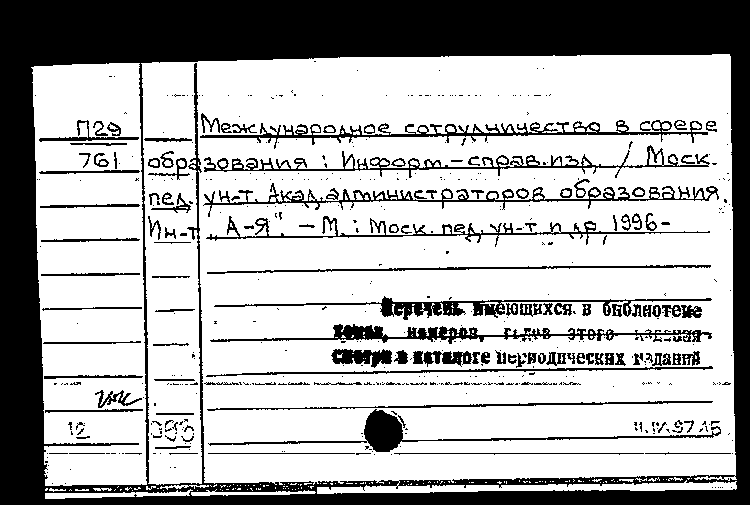 П29 Международное сотрудничество в сфере
761 образования : Информ.-справ.изд. / Моск.
пед. ун-т. Акад.администраторов образования.
Ин-т „А-Я". – М. : Моск. пед. ун-т и др, 1996-
Перечень имеющихся в библиотеке
томов, номеров, годов этого издания
смотри в каталоге периодических изданий
12 093 11.IV.97.15